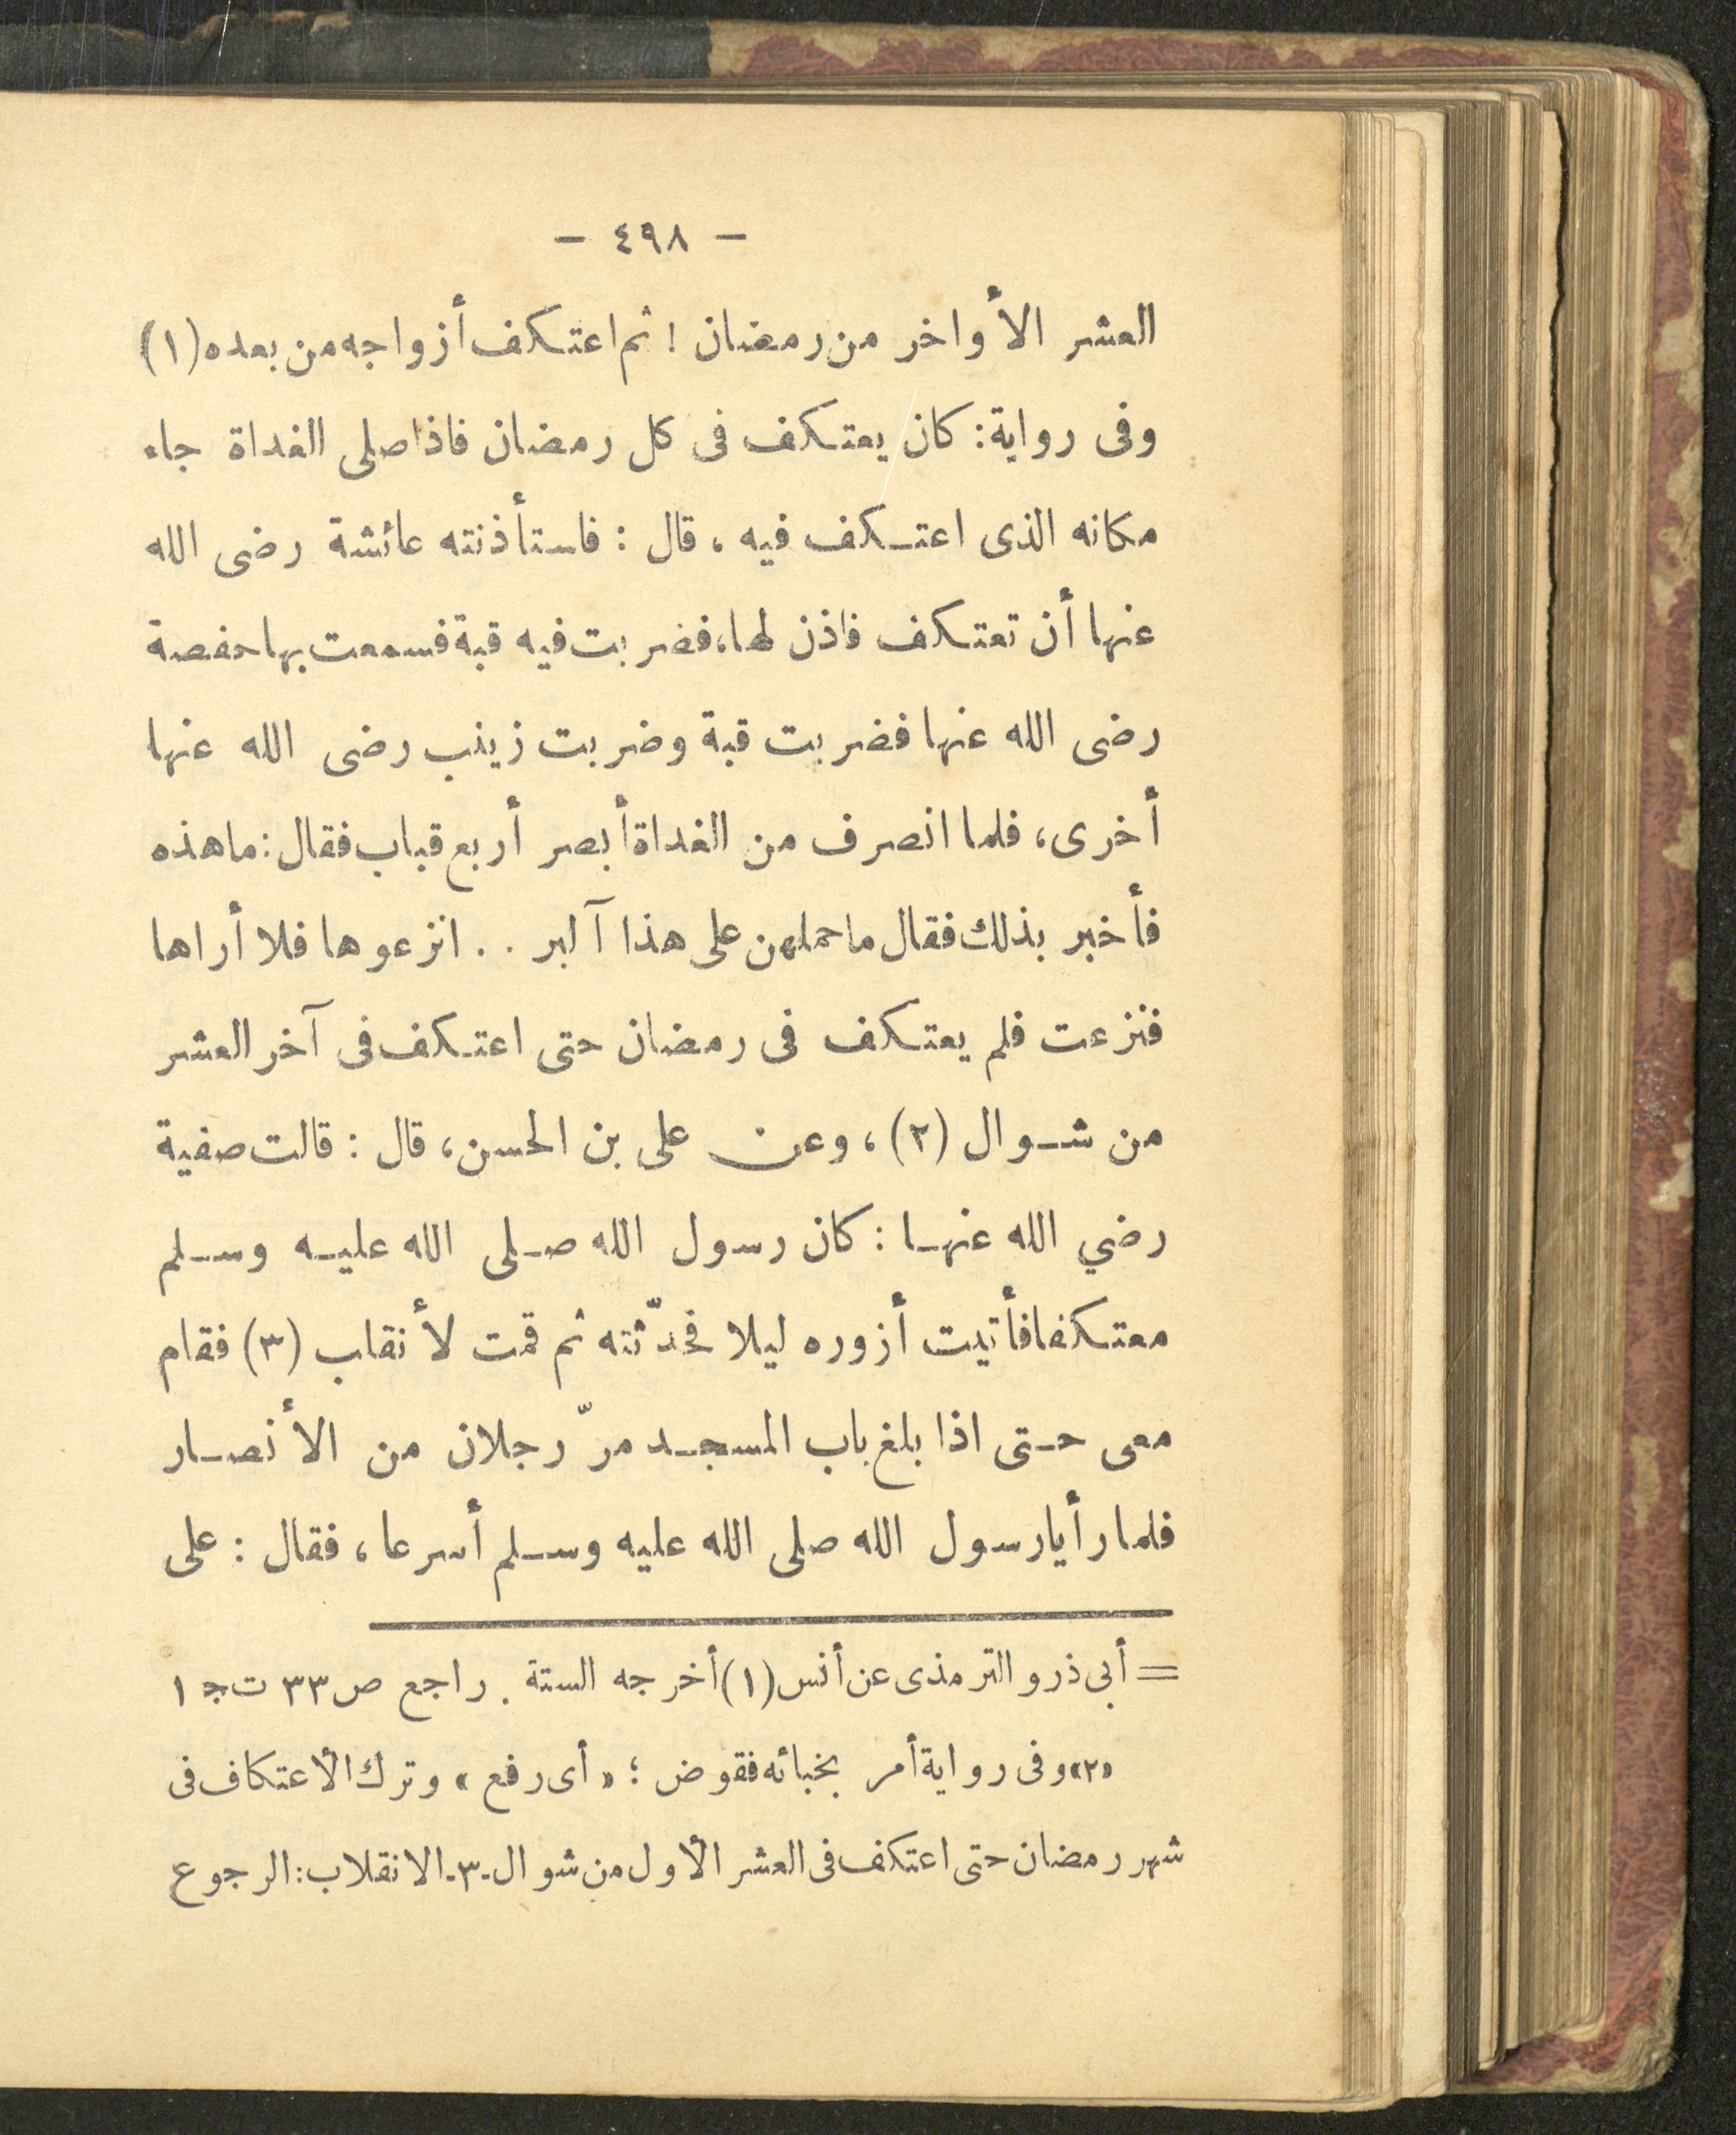 — ٤٩٨ —
العشر الأواخر من رمضان ! ثم اعتكف أزواجه من بعده (١)
وفى رواية : كان يعتكف فى كل رمضان فاذا صلى الغداة جاء
مكانه الذى اعتكف فيه ، قال : فاستأذنته عائشة رضى الله
عنها أن تعتكف فاذن لها، فضربت فيه قبة فسمعت بها حفصة
رضى الله عنها فضربت قبة وضربت زينب رضى الله عنها
أخرى ، فلما انصرف من الغداة أبصر أربع قباب فقال : ما هذه
فأخبر بذلك فقال ما حملهن على هذا آلبر . . انزعوها فلا أراها
فنزعت فلم يعتكف فى رمضان حتى اعتكف فى آخر العشر
من شوال (٢) ، وعن على بن الحسن ، قال : قالت صفية
رضي الله عنها : كان رسول الله صلى الله عليه وسلم
معتكفا فأتيت أزوره ليلا فحدّثته ثم قمت لأنقلب (٣) فقام
معى حتى اذا بلغ باب المسجد مرّ رجلان من الأنصار
فلما رأيا رسول الله صلى الله عليه وسلم أسرعا ، فقال : على
= أبى ذر و الترمذى عن أنس (١) أخرجه الستة . راجع ص ٣٣ ت ج ١
«٢» وفى رواية أمر بخبائه فقوض ؛ « أى رفع » وترك الأعتكاف فى
شهر رمضان حتى اعتكف فى العشر الأول من شوال -٣- الانقلاب : الرجوع